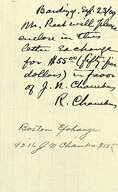 Mr. Rect will please
enclose in this
letter Exchange
for $55.00 (fifty five
dollars) in favor
of J. N. Chambers
R. Chambers
Boston Exchange
4216 J N Chambers $55